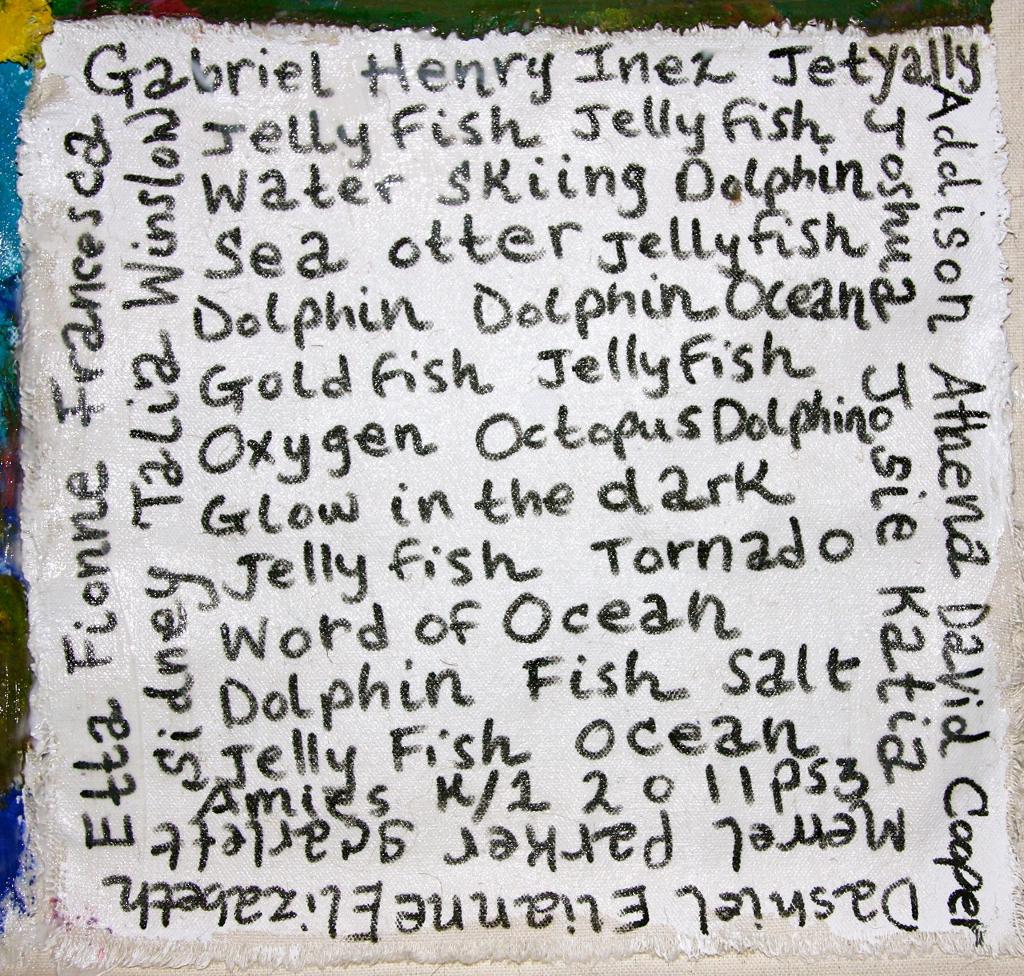 Gabriel Henry Inez Jetyally
Jelly fish Jelly fish
Water Skiing Dolphin
Sea otter Jellyfish
Dolphin Dolphin Ocean
Gold fish Jelly Fish
Oxygen Octopus Dolphin
Glow in the dark
Jelly fish Tornado
Word of Ocean
Dolphin Fish Salt
Jelly Fish Ocean
Amies K/1 2011 PS3
Addison Athena David Cooper
Joshua Josie Katia
Dashiel Elianne Elizabeth
Merrel Parker Scarlett
Etta Fionne Francesca
Sidney Talia Winslow